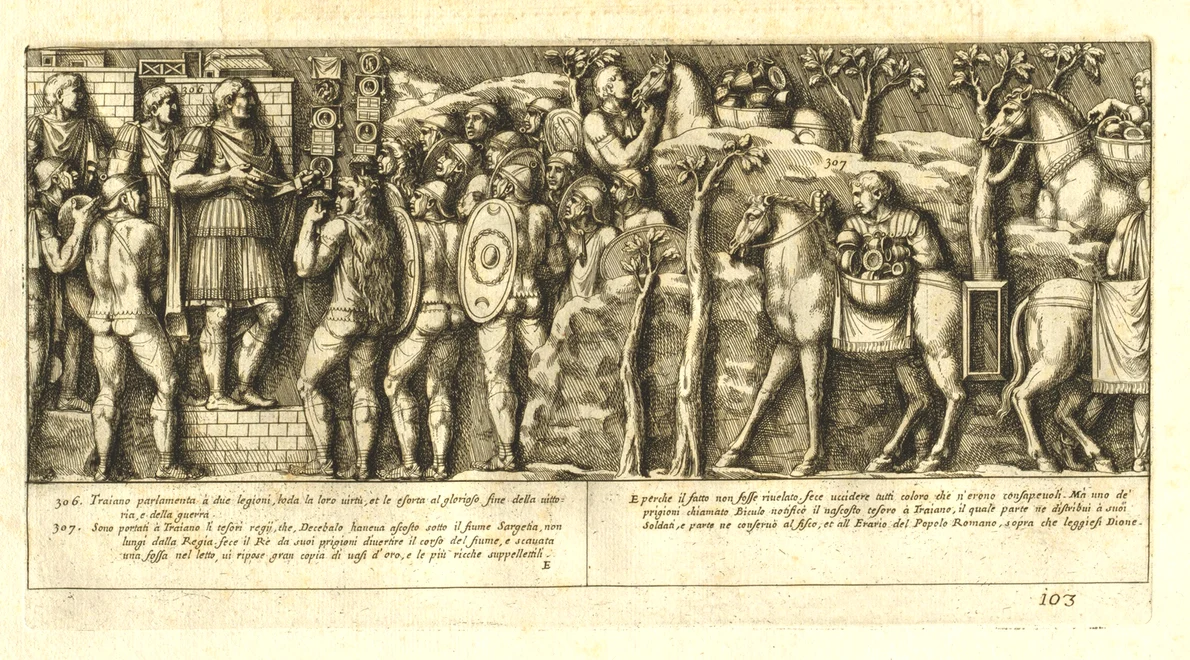 306
307
306. Traiano parlamenta à due legioni, loda la loro uirtù, et le esorta al glorioso fine della uitto=
ria, e della guerra.
307. Sono portati à Traiano li tesori regij, che, Decebalo haneua ascosto sotto il fiume Sargetia, non
lungi dalla Regia. fece il Rè da suoi prigioni diuertire il corso del fiume, e scauata
una fossa nel letto, ui ripose gran copia di uasi d'oro, e le più ricche suppellettili.
E
E perche il fatto non fosse riuelato, fece uccidere tutti coloro che n'erono consapeuoli. Mà uno de'
prigioni chiamato Biculo notificò il nascosto tesoro à Traiano, il quale parte ne distribui à suoi
Soldati, e parte ne conseruò al fisco, et all Erario del Popolo Romano, sopra che leggiesi Dione.
103